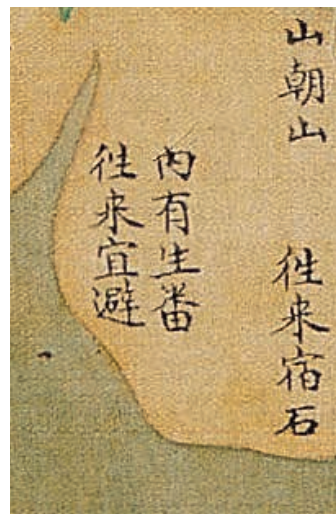 山朝山
徃来宿石
內有生番
徃来宜避